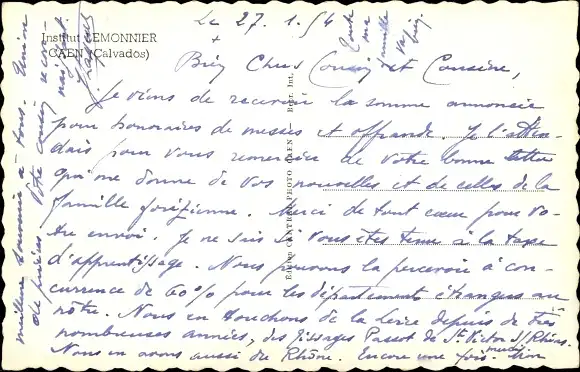 Institut LEMONNIER
CAEN (Calvados)
Le 27. 1. 54
+
Bien Chers Cousin et Cousine,
Je viens de recevoir la somme annoncée
pour honoraires de messes et offrande. Je l'atten-
dais pour vous remercier de votre bonne lettre
qui me donne de vos nouvelles et de celles de la
famille forézienne. Merci de tout cœur pour vo-
tre envoi. Je ne sais si vous êtes tenus à la taxe
d'apprentissage. Nous pouvons la percevoir à con-
currence de 60% pour les départements étrangers au
nôtre. Nous en touchons de la Loire depuis de très
nombreuses années, des Tissages Passot de St Victor s/Rhins.
Nous en avons aussi du Rhône. Encore une fois merci. Mon
meilleur souvenir à tous. Union
de prières. Votre cousin recon-
naissant.
Toute
ma
famille
va
bien
Edition CANTREL PHOTO CAEN — Repr. Int.